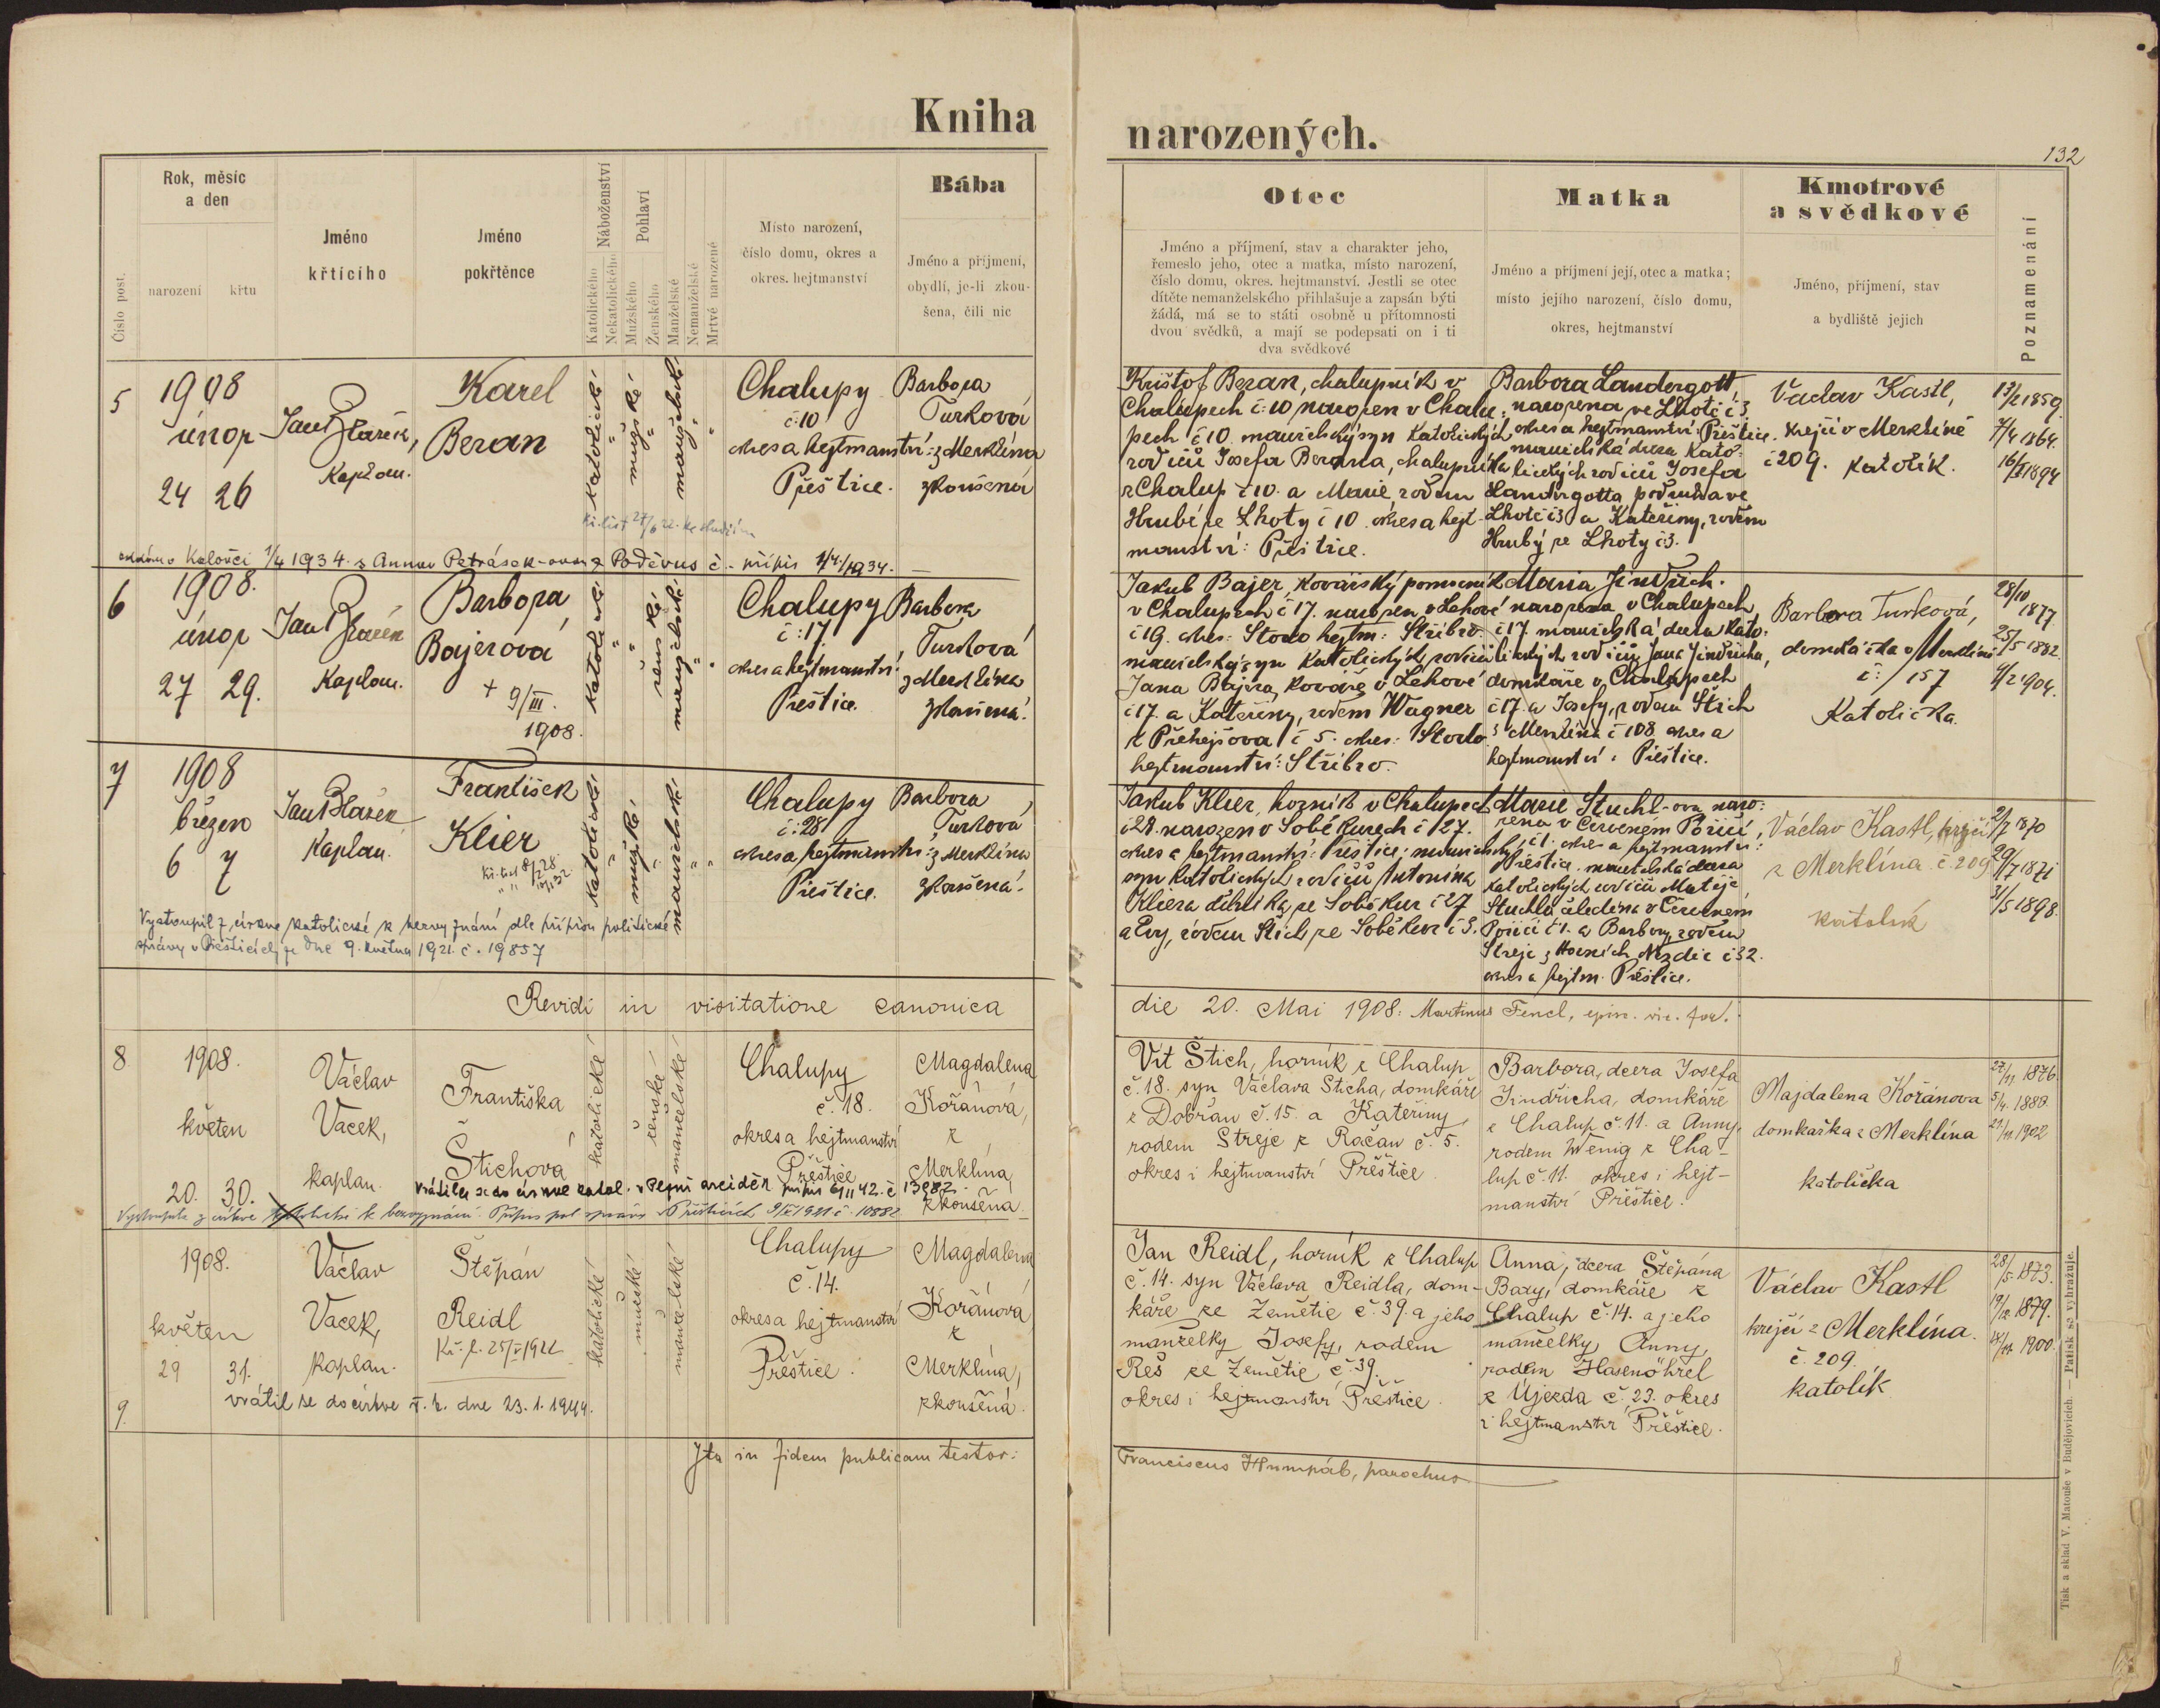 Kniha
narozených.
132
Číslo post.
Rok, měsíc
a den
narození
křtu
Jméno
křtícího
Jméno
pokřtěnce
Náboženství
Katolického
Nekatolického
Pohlaví
Mužského
Ženského
Manželské
Nemanželské
Mrtvé narozené
Místo narození,
číslo domu, okres a
okres. hejtmanství
Bába
Jméno a příjmení,
obydlí, je-li zkou-
šena, čili nic
Otec
Jméno a příjmení, stav a charakter jeho,
řemeslo jeho, otec a matka, místo narození,
číslo domu, okres. hejtmanství. Jestli se otec
dítěte nemanželského přihlašuje a zapsán býti
žádá, má se to státi osobně u přítomnosti
dvou svědků, a mají se podepsati on i ti
dva svědkové
Matka
Jméno a příjmení její, otec a matka;
místo jejího narození, číslo domu,
okres, hejtmanství
Kmotrové
a svědkové
Jméno, příjmení, stav
a bydliště jejich
Poznamenání
5
1908
únor
24 26
Jan Blažek,
Kaplan.
Karel
Beran
katolické
mužské
manželské
Chalupy
č: 10
okres a hejtmanství:
Přeštice.
Barbora
Turková
z Merklína
zkoušená
Křištof Beran, chalupník v
Chalupech č: 10 narozen v Chalu-
pech č 10. manželský syn katolických
rodičů Josefa Berana, chalupníka
z Chalup č 10. a Marie rodem
Hrubé ze Lhoty č 10. okres a hejt-
manství: Přeštice.
Barbora Landergott,
narozena ve Lhotě č 3.
okres a hejtmanství: Přeštice.
manželská dcera kato-
lických rodičů Josefa
Landergotta podruha ve
Lhotě č 3 a Kateřiny, rodem
Hrubý ze Lhoty č 3.
Václav Kastl,
krejčí v Merklíně
č 209. katolík.
13/2 1859.
7/4 1864.
16/1 1894
1/4 1934 s Annou Petrásek-ovou z Poděvus č - přípis 4/4/1934.
6
1908.
únor
27 29.
Jan Blažek
Kaplan.
Barbora
Bajerová
+ 9/III.
1908.
katolické
ženské
manželské
Chalupy
č: 17
okres a hejtmanství
Přeštice.
Barbora
Turková
z Merklína
zkoušená.
Jakub Bajer, kovářský pomocník
v Chalupech č 17. narozen v Lehové
č 19. okres: Stodo hejtm: Stříbro.
manželský syn katolických rodičů
Jana Bajera kováře v Lehové
č 17. a Kateřiny, rodem Wagner
z Přehejšova č 5. okres: Stodo
hejtmanství: Stříbro.
Maria Jindřich.
narozena v Chalupech
č 17 manželská dcera kato-
lických rodičů Jana Jindřicha,
domkáře v Chalupech
č 17. a Josefy, rodem Štich
z Merklína č 108. okres a
hejtmanství: Přeštice.
Barbora Turková,
domkářka v Merklíně
č: 157
Katolička.
28/10 1877
25/5 1882.
4/2 1904.
7
1908
březen
6 7
Jan Blažek
Kaplan.
František
Klier
katolické
mužské
manželské
Chalupy
č: 28
okres a hejtmanství:
Přeštice.
Barbora
Turková
z Merklína
zkoušená.
Vystoupil z církve katolické k bezvyznání dle přípisu politické
správy v Přešticích ze dne 9. května 1921. č. 19857
Jakub Klier, horník v Chalupech
č 28. narozen v Soběkurech č 27.
okres a hejtmanství: Přeštice; manželský
syn katolických rodičů Antonína
Kliera dělníka, ze Soběkur č 27
a Evy, rodem Štich ze Soběkur č 3.
Marie Stuchl-ova naro-
zena v Červeném Poříčí,
č 1. okres a hejtmanství:
Přeštice. manželská dcera
katolických rodičů Matěje
Stuchla čeledína v Červeném
Poříčí č 1. a Barbory, rodem
Streje z Horních Nezdic č 32.
okres a hejtm. Přeštice.
Václav Kastl, krejčí
z Merklína č. 209
katolík
2/7 1870
29/7 1871
31/5 1898.
Revidi in visitatione canonica
die 20. Mai 1908. Martinus Fencl,
8.
1908.
květen
20. 30.
Václav
Vacek,
kaplan.
Františka
Štichová
katolické
ženské
manželské
Chalupy
č. 18.
okres a hejtmanství
Přeštice
Magdalena
Kořánová,
z
Merklína,
zkoušená.
Vrátila se do církve katol.
Vystoupila z církve katolické k bezvyznání
Vít Štich, horník z Chalup
č. 18. syn Václava Sticha, domkáře
z Dobřan č. 15. a Kateřiny
rodem Streje z Račan č. 5.
okres i hejtmanství Přeštice
Barbora, dcera Josefa
Jindřicha, domkáře
z Chalup č. 11. a Anny,
rodem Wenig z Cha-
lup č. 11. okres i hejt-
manství Přeštice.
Majdalena Kořánova
domkařka z Merklína
katolička
27/11 1876.
5/4. 1880.
1902
9.
1908.
květen
29 31.
Václav
Vacek,
kaplan.
Štěpán
Reidl
katolické
mužské
manželské
Chalupy
č. 14.
okres a hejtmanství
Přeštice.
Magdalena
Kořánová
z
Merklína,
zkoušená.
vrátil se do církve ř. k. dne 23. 1. 1944.
Jan Reidl, horník z Chalup
č. 14. syn Václava Reidla, dom-
káře ze Zemětic č. 39. a jeho
manželky Josefy, rodem
Reš ze Zemětic č. 39.
okres i hejtmanství Přeštice.
Anna, dcera Štěpána
Baxy, domkáře z
Chalup č. 14. a jeho
manželky Anny,
rodem Hasenöhrel
z Újezda č. 23. okres
i hejtmanství Přeštice.
Václav Kastl
krejčí z Merklína.
č. 209.
katolík
28/5 1873.
19/12 1879.
1900.
Ita in fidem publicam testor:
Franciscus Humpál, parochus
Tisk a sklad V. Matouše v Budějovicích. — Patisk se vyhražuje.